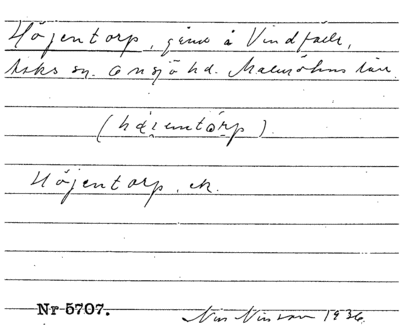 Höjentorp, gård å Vindfälle,
Asks sn. Onsjö hd. Malmöhus län.
(hǻientǻrp)
Höjentorp, ek.
Nr 5707.
Nils Nilsson 1936